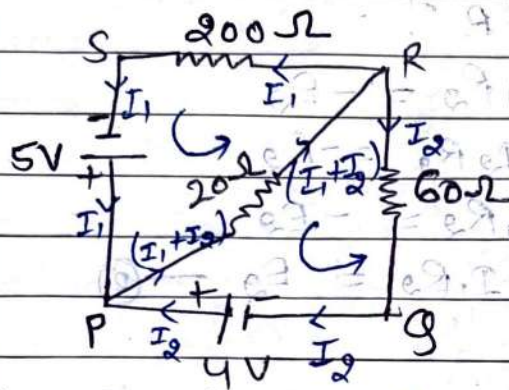 200 Ω
S
R
I₁
I₁
I₂
-
5V
+
20Ω
(I₁+I₂)
60Ω
I₁
(I₁+I₂)
+
-
P
I₂
4V
I₂
Q